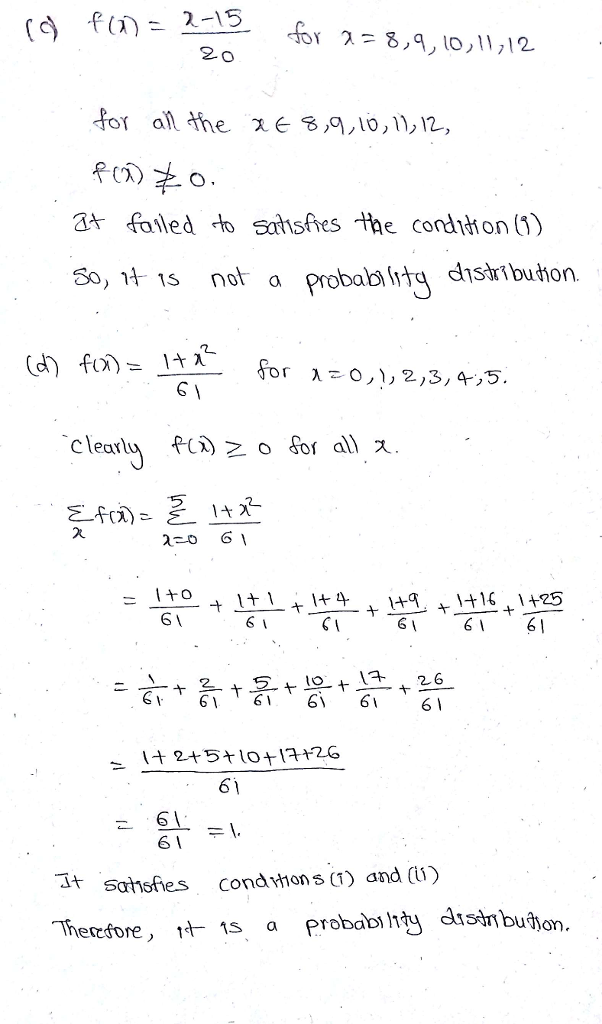 (c) f(x) = x-15 / 20 for x = 8,9,10,11,12
for all the x ∈ 8,9,10,11,12,
f(x) ≱ 0.
It failed to satisfies the condition (i)
So, it is not a probability distribution.
(d) f(x) = 1+x² / 61 for x=0,1,2,3,4,5.
clearly f(x) ≥ 0 for all x.
Σₓ f(x) = Σ_{x=0}^{5} 1+x² / 61
= 1+0/61 + 1+1/61 + 1+4/61 + 1+9/61 + 1+16/61 + 1+25/61
= 1/61 + 2/61 + 5/61 + 10/61 + 17/61 + 26/61
= 1+2+5+10+17+26 / 61
= 61/61 = 1.
It satisfies conditions (i) and (ii)
Therefore, it is a probability distribution.